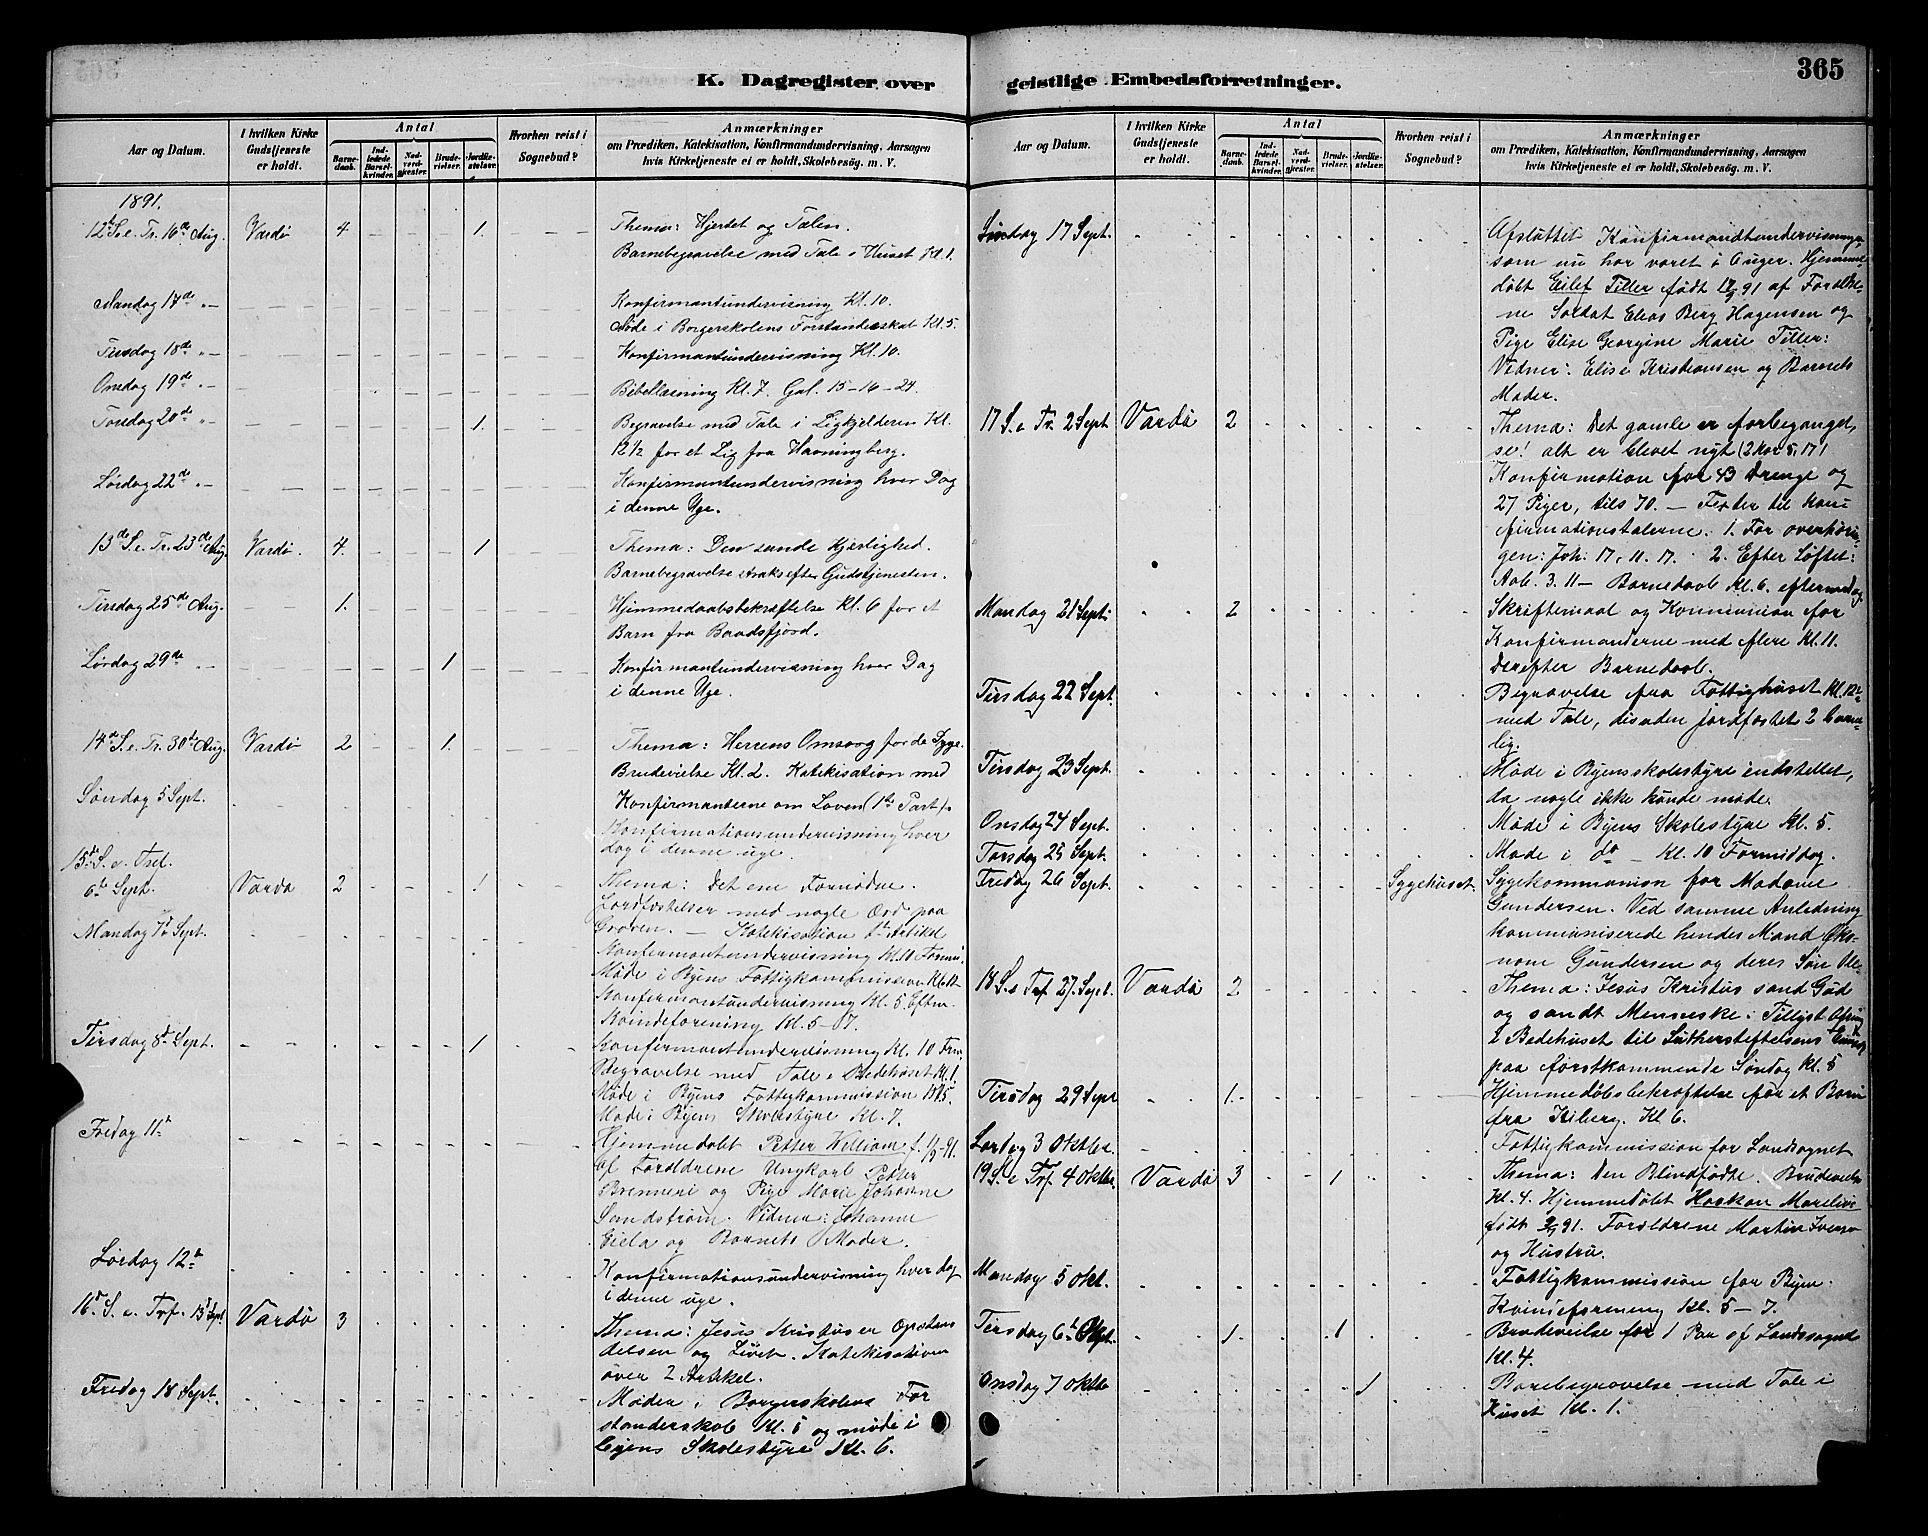 K. Dagregister over
Aar og Datum.
I hvilken Kirke Gudstjeneste er holdt.
Antal
Barnedaab.
Indledede Barselkvinder.
Nadverdgjester.
Brudevielser.
Jordfæstelser.
Hvorhen reist i Sognebud?
Anmærkninger
om Prædiken, Katekisation, Konfirmandundervisning, Aarsagen
hvis Kirketjeneste ei er holdt, Skolebesøg. m. V.
1891.
12te S. e. Tr. 16de Aug. Vardø 4 1. Thema: Hjertet og Talen.
Barnebegravelse med Tale i Huset Kl. 1.
Mandag 17de Konfirmantundervisning Kl. 10.
Møde i Borgerskolens Forstanderskab Kl. 5.
Tirsdag 18de Konfirmantundervisning Kl. 10.
Onsdag 19de Bibellæsning Kl. 7. Gal. 15-16-24
Torsdag 20de 1. Begravelse med Tale i Ligkjelderen Kl.
12 1/2 for et Lig fra Havningberg.
Lørdag 22de Konfirmantundervisning hver Dag
i denne Uge.
13de S. e. Tr. 23de Aug. Vardø. 4. 1 Thema: Den sande Kjærlighed.
Barnebegravelse straks efter Gudstjenesten.
Tirsdag 25de Aug. 1. Hjemmedaabsbekræftelse Kl. 6 for et
Barn fra Baadsfjord.
Lørdag 29de 1. Konfirmantundervisning hver Dag
i denne Uge.
14de S. e. Tr. 30te Aug. Vardø 2 1. Thema: Herrens Omsorg for de Syge.
Brudevielse Kl. 2. Katekisation med
Søndag 5 Sept. Konfirmanterne om Loven (1ste Part).
Konfirmationsundervisning hver
dag i denne uge.
15de S. e. Tref.
6te Sept. Vardø 2 1 Thema: Det ene Fornødne.
Jordfæstelser med nogle Ord paa
Mandag 7de Sept. Graven. – Katekisation 1ste Artikel
Konfermantundervisning Kl. 10 Form.
Møde i Byens Fattigkommission Kl. 12
Konfirmantundervisning Kl. 5 Eftm.
Kvindeforening Kl. 5-7.
Tirsdag 8de Sept. 1 Konfermantundervisning Kl. 10 Frm.
Begravelse med Tale i Bedehuset Kl. 1
Møde i Byens Fattigkommission Kl. 5.
Møde i Byens Skolestyre Kl. 7.
Fredag 11te Hjemmedøbt Petter William f. 1/9-91.
af Forældrene Ungkarl Petter
Brenneri og Pige Marie Johanne
Sandstrøm. Vidner: Johanne
Eiela og Barnets Moder.
Lørdag 12te Konfirmationsundervisning hver dag
i denne uge.
16de S. e. Tref. 13de Sept. Vardø 3 Thema: Jesus Kristus er Opstan
delsen og Livet. Katekisation
over 2 Artikel.
Fredag 18 Sept. Møder i Borgerskolens For
standerskab Kl. 5 og møde i
Byens Skolestyre Kl. 6.
geistlige Embedsforretninger.
365
Aar og Datum.
I hvilken Kirke Gudstjeneste er holdt.
Antal
Barnedaab.
Indledede Barselkvinder.
Nadverdgjester.
Brudevielser.
Jordfæstelser.
Hvorhen reist i Sognebud?
Anmærkninger
om Prædiken, Katekisation, Konfirmandundervisning, Aarsagen
hvis Kirketjeneste ei er holdt, Skolebesøg. m. V.
Søndag 17 Sept. Afsluttet Konfirmandtundervisningen
som nu har varet i Uger. Hjemme
døbt Eilef Tiller født 91 af Forældre
ne Soldat Elias Berg Hagensen og
Pige Elise Georgine Marie Tiller:
Vidner: Elise Kristiansen og Barnets
Moder.
17 S. e. Tr. 2 Sept. Vardø 2 Thema: Det gamle er forbeganget,
se! alt er blevet nyt (2 Kor 5, 17)
Konfirmation for 43 Drenge og
27 Piger, tils 70. – Texter til kon
firmationstalerne: 1. For overhørin
gen: Joh. 17, 11. 17. 2. Efter Løftet:
Aab. 3. 11 – Barnedaab Kl. 6. eftermidag
Mandag 21 Sept. 2 Skriftemaal og Kommunion for
Konfirmanderne med flere Kl. 11.
Derefter Barnedaab.
Tirsdag 22 Sept. Begravelse fra Fattighuset Kl. 12
med Tale, desuden jordfæstet 2 barne
lig.
Tirsdag 23 Sept. Møde i Byensskolestyre indstellet,
da nogle ikke kunde møde.
Onsdag 24 Sept. Møde i Byens Skolestyre Kl. 5.
Torsdag 25 Sept. Møde i do – Kl. 10 Formiddag.
Fredag 26 Sept. Sygehuset Sygekommunion for Madame
Gundersen. Ved samme Anledning
kommuniserede hendes Mand Øko
nom Gundersen og deres Søn Ole
18 S. e. Tref. 27. Sept. Vardø 2 Thema: Jesus Kristus sand Gud
og sandt Menneske: Tillyst Ofring
i Bedehuset til Lutherstiftelsens
paa førstkommende Søndag Kl. 5
Tirsdag 29 Sept 1. Hjemmedøbsbekræftelse for et Barn
fra Kiberg. Kl. 6.
Lørdag 3 Oktbe. Fattigkommission for Landsognet
19 S. e. Tref. 4 Oktbr. Vardø 3 1 Thema: Den Blindfødte. Brudevielse
Kl. 4. Hjemmedøbt Haakon Marelius
født 91. Forældrene Martin Iversen
og Hustru.
Mandag 5 Okt. Fattigkommission for Byen.
Kvindeforening Kl. 5-7.
Tirsdag 6te Okt. 1. 1 Brudevielse for 1 Par af Landsognet
Kl. 4.
Onsdag 7 Oktbe 1 Barebegravelse med Tale i
Huset Kl. 1.